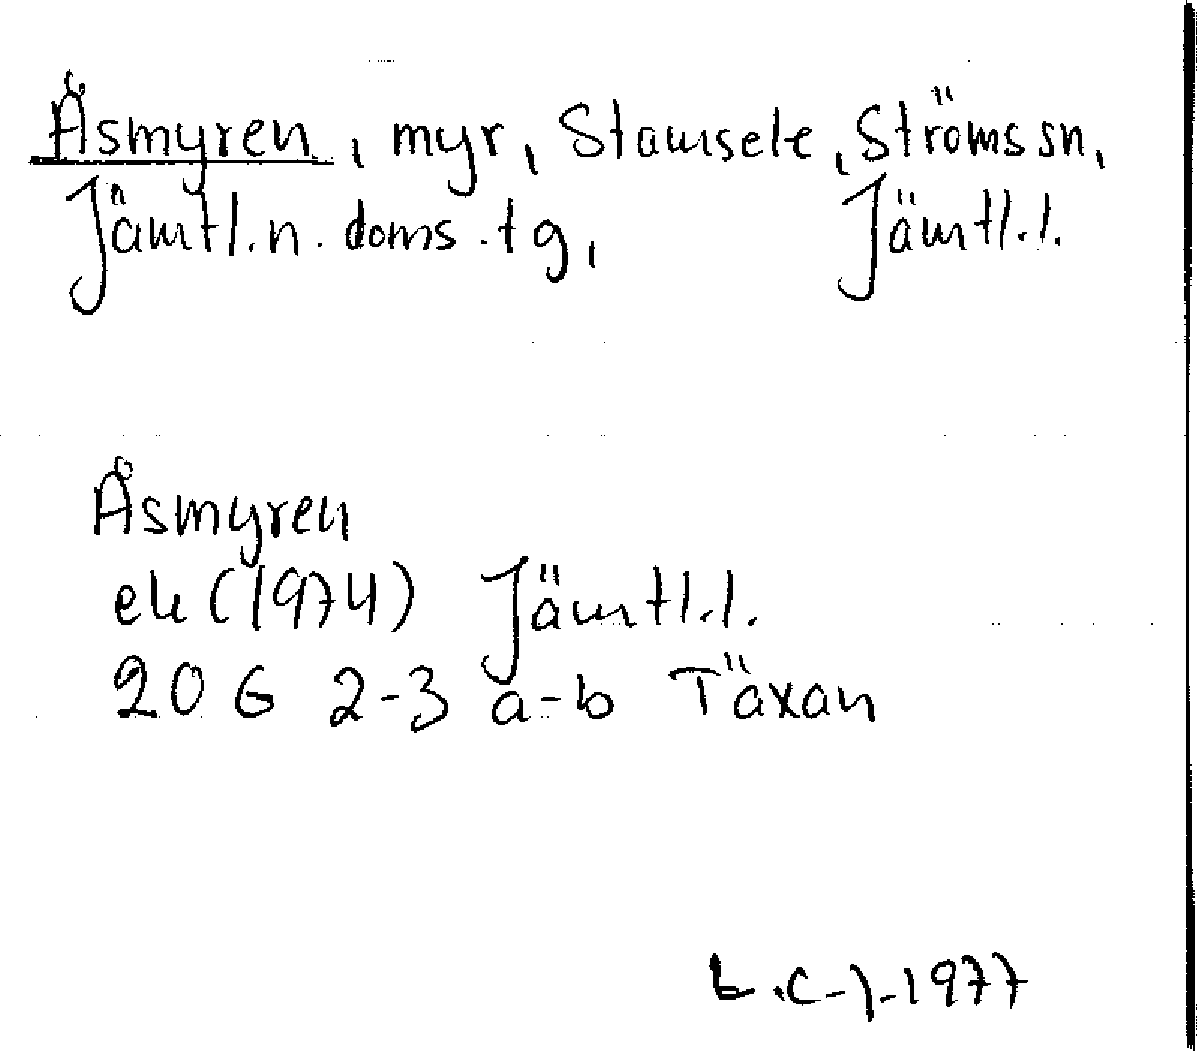 Åsmyren, myr, Stamsele, Ströms sn,
Jämtl. n. doms. tg, Jämtl. l.
Åsmyren
ek (1974) Jämtl. l.
20 G 2-3 a-b Täxan
1977